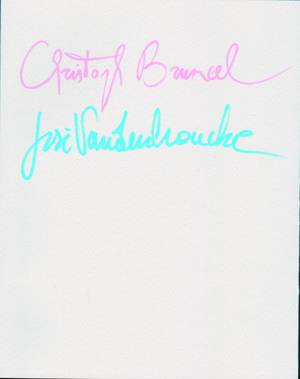 Christoph Bruncel
José Vandenbroucke